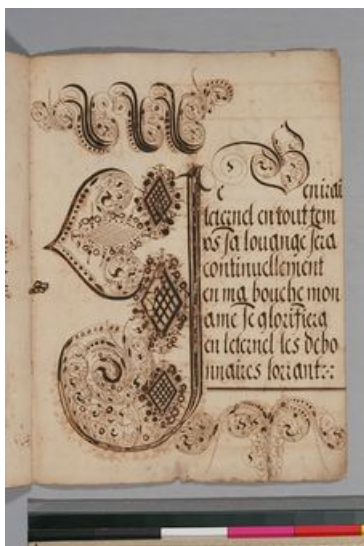 Je Benirai
leternel en tout tem
ps sa louange sera
continuellement
en ma bouche mon
ame se glorifiera
en leternel les debo
nnaires lorrant